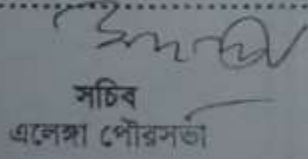 সচিব
এলেঙ্গা পৌরসভা